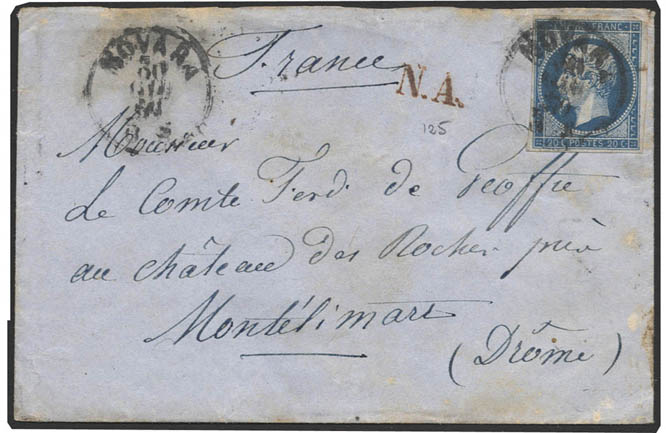 NOVARA
France
N.A.
NOVARA
FRANC
20 C. POSTES 20 C.
125
Monsieur
Le Comte Ferd. de Geoffre
au château des Rocher près
Montélimart
(Drôme)